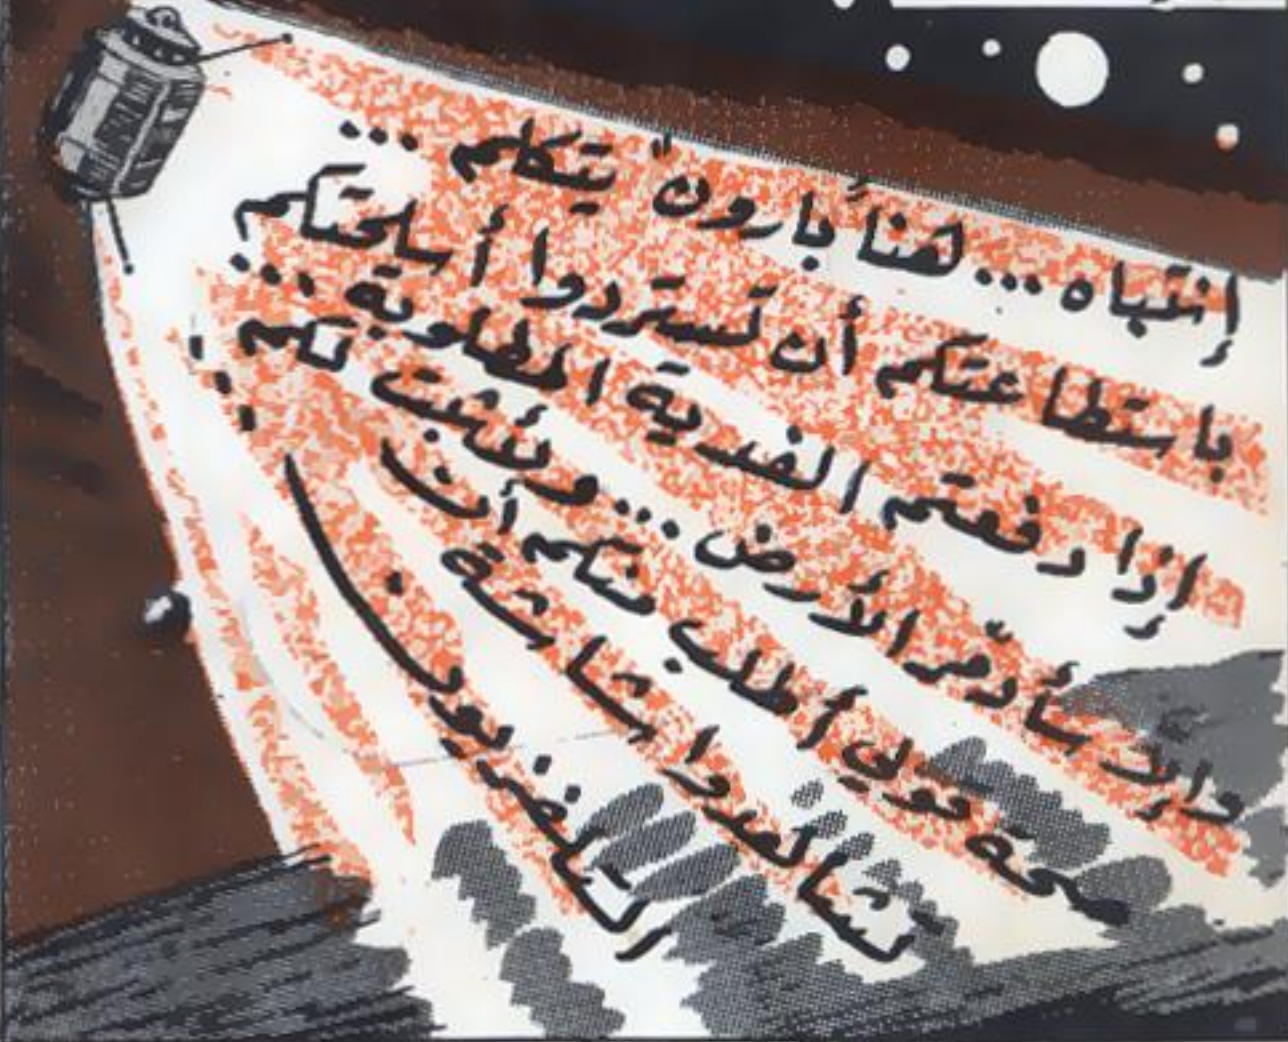 إنتباه... هنا "بارون" يتكلم...
باستطاعتكم أن تستردوا أسلحتكم
إذا دفعتم الفدية المطلوبة...
وإلا سأدمّر الأرض... ولأثبت لكم
صحة قولي أطلب منكم أن
تشاهدوا شاشة
التلفزيون